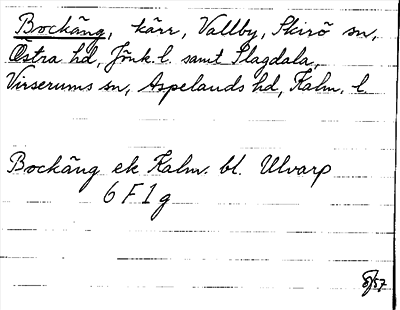 Bockäng, kärr, Vallby, Skirö sn,
Östra hd, Jönk. l. samt Slagdala,
Virserums sn, Aspelands hd, Kalm. l.
Bockäng ek Kalm. bl. Ulvarp
6 F 1 g